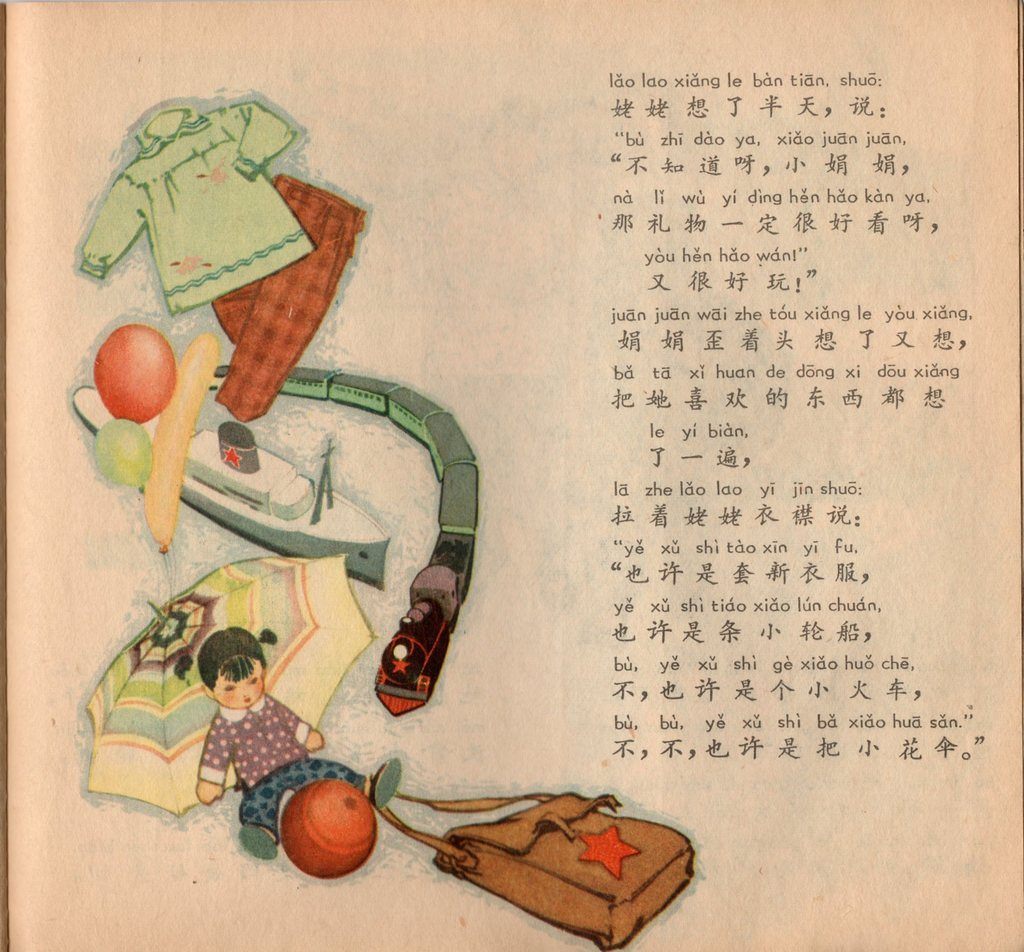 lǎo lao xiǎng le bàn tiān, shuō:
姥姥想了半天，说：
“bù zhī dào ya, xiǎo juān juān,
“不知道呀，小娟娟，
nà lǐ wù yí dìng hěn hǎo kàn ya,
那礼物一定很好看呀，
yòu hěn hǎo wán!”
又很好玩！”
juān juān wāi zhe tóu xiǎng le yòu xiǎng,
娟娟歪着头想了又想，
bǎ tā xǐ huan de dōng xi dōu xiǎng
把她喜欢的东西都想
le yí biàn,
了一遍，
lā zhe lǎo lao yī jīn shuō:
拉着姥姥衣襟说：
“yě xǔ shì tào xīn yī fu,
“也许是套新衣服，
yě xǔ shì tiáo xiǎo lún chuán,
也许是条小轮船，
bù, yě xǔ shì gè xiǎo huǒ chē,
不，也许是个小火车，
bù, bù, yě xǔ shì bǎ xiǎo huā sǎn.”
不，不，也许是把小花伞。”